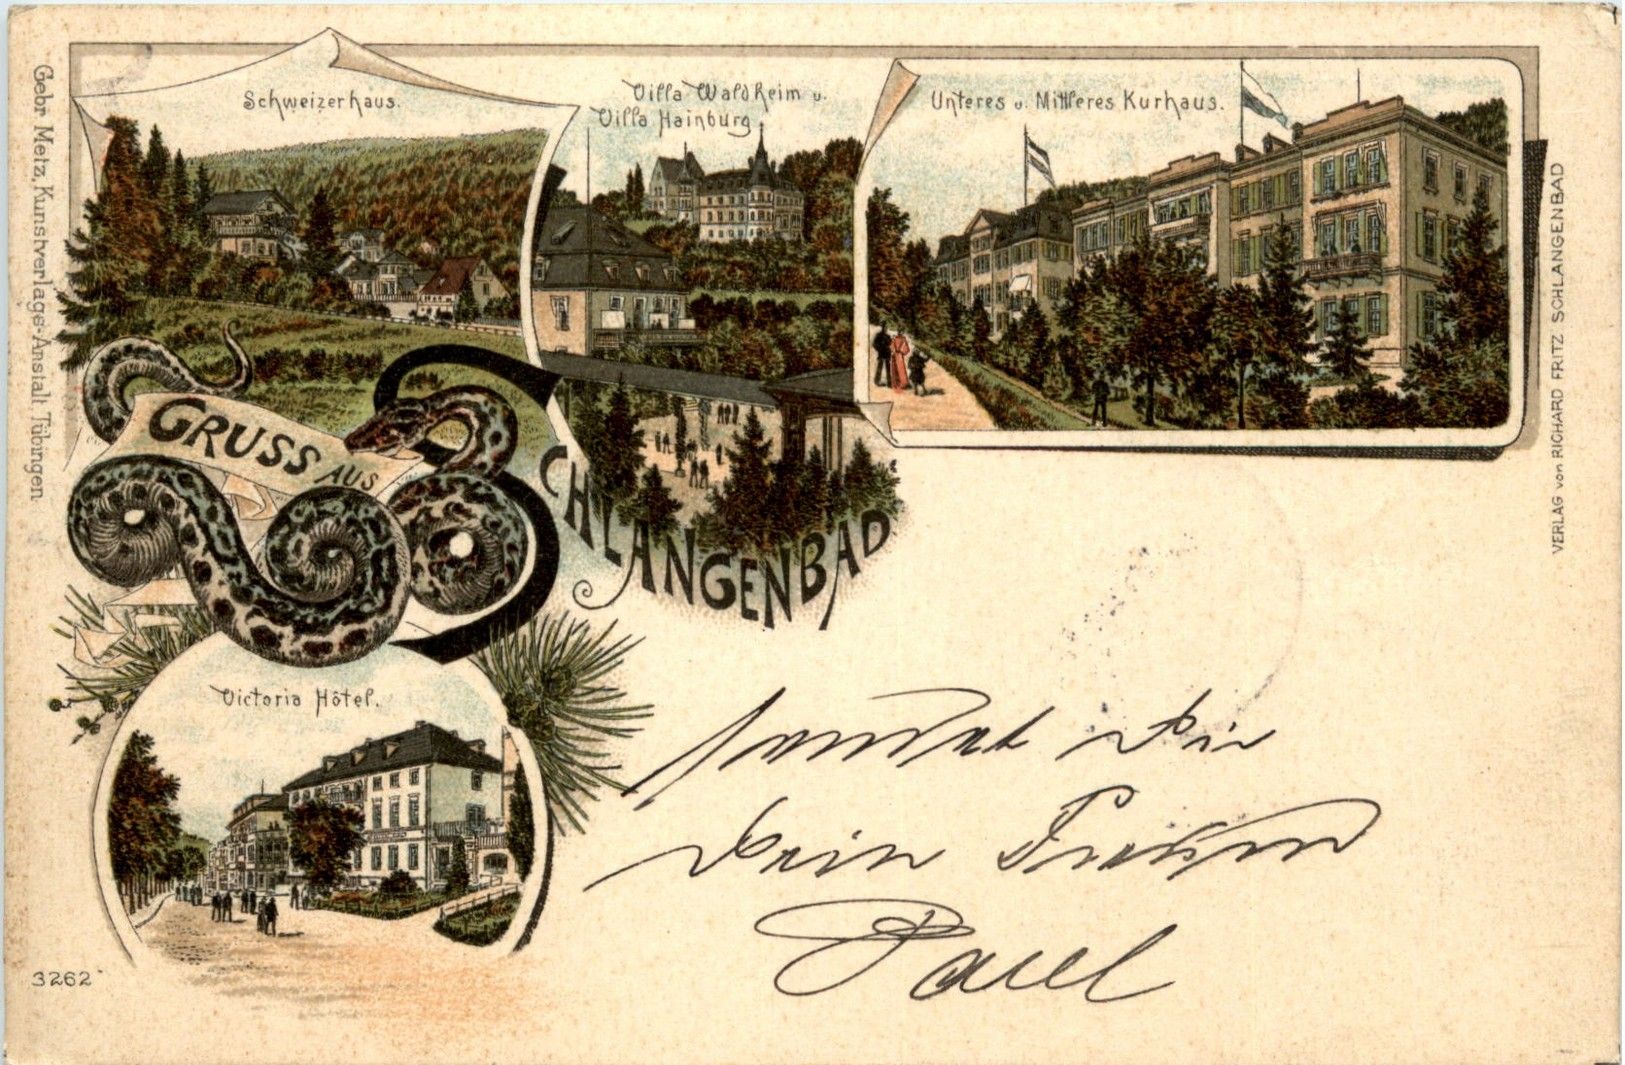 Schweizerhaus.
Villa Waldheim u.
Villa Hainburg
Unteres u. Mittleres Kurhaus.
GRUSS AUS
SCHLANGENBAD
Victoria Hôtel.
sendet Dir
Dein
Paul
3262
Gebr. Metz, Kunstverlags-Anstalt, Tübingen.
VERLAG von RICHARD FRITZ SCHLANGENBAD